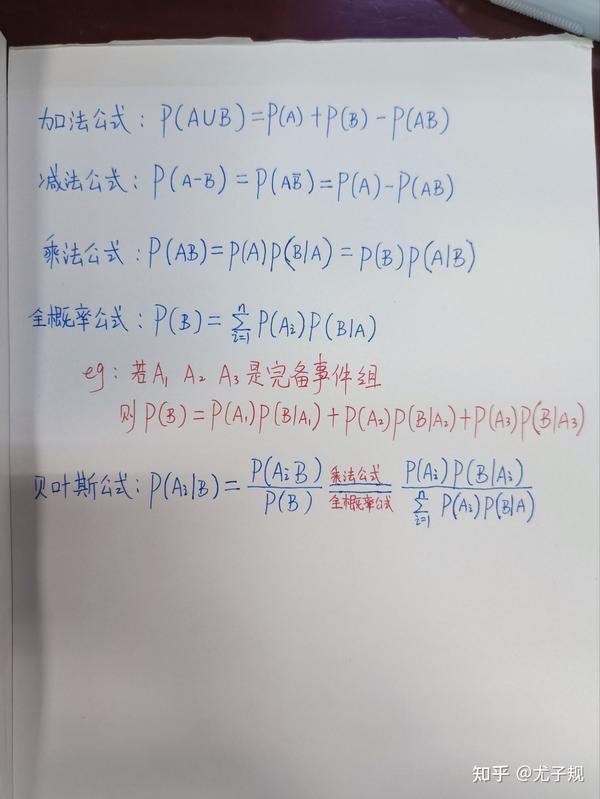 加法公式：P(A∪B)=P(A)+P(B)-P(AB)
减法公式：P(A-B)=P(AB̅)=P(A)-P(AB)
乘法公式：P(AB)=P(A)P(B|A)=P(B)P(A|B)
全概率公式：P(B)=∑_{i=1}^{n} P(A_i)P(B|A)
eg：若A₁ A₂ A₃是完备事件组
则P(B)=P(A₁)P(B|A₁)+P(A₂)P(B|A₂)+P(A₃)P(B|A₃)
贝叶斯公式：P(A_i|B)=\frac{P(A_i B)}{P(B)} \xlongequal[全概率公式]{乘法公式} \frac{P(A_i)P(B|A_i)}{∑_{i=1}^{n} P(A_i)P(B|A)}
知乎 @尤子规